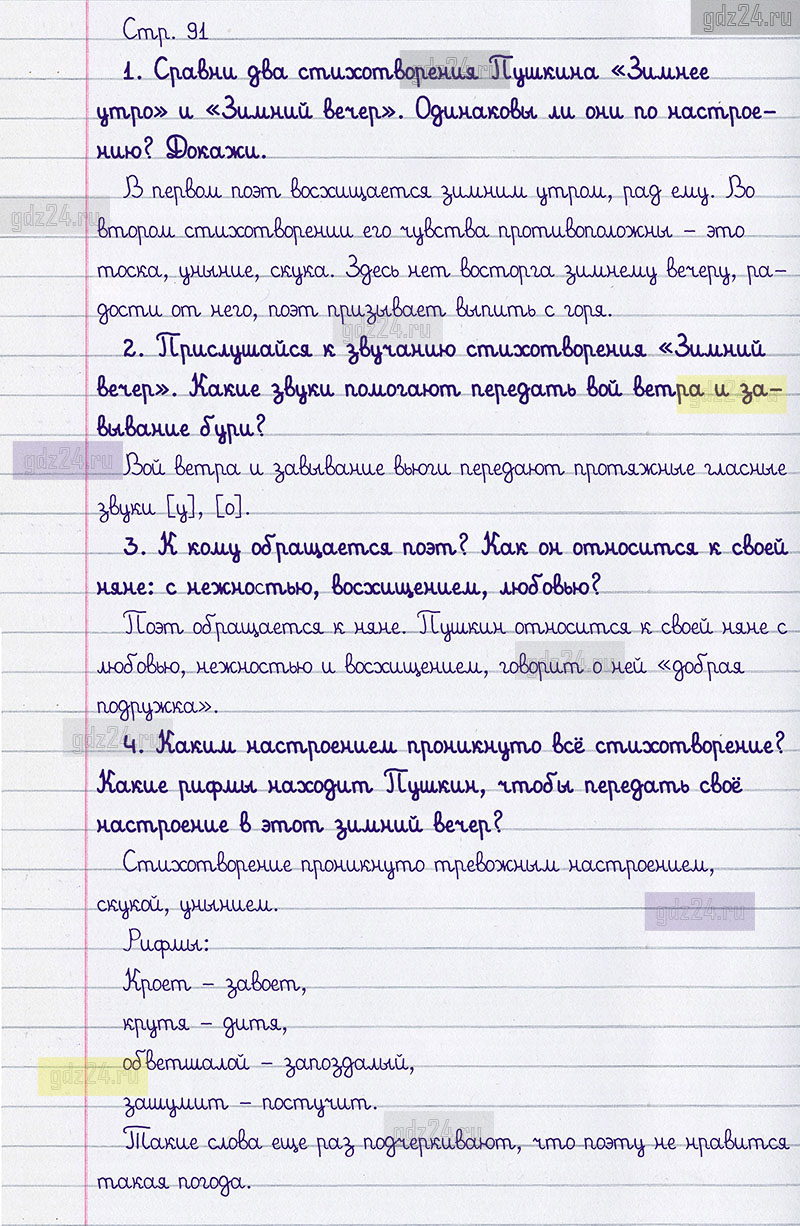 gdz24.ru
Стр. 91
1. Сравни два стихотворения Пушкина «Зимнее
утро» и «Зимний вечер». Одинаковы ли они по настрое-
нию? Докажи.
В первом поэт восхищается зимним утром, рад ему. Во
втором стихотворении его чувства противоположны – это
тоска, уныние, скука. Здесь нет восторга зимнему вечеру, ра-
дости от него, поэт призывает выпить с горя.
2. Прислушайся к звучанию стихотворения «Зимний
вечер». Какие звуки помогают передать вой ветра и за-
вывание бури?
Вой ветра и завывание вьюги передают протяжные гласные
звуки [у], [о].
3. К кому обращается поэт? Как он относится к своей
няне: с нежностью, восхищением, любовью?
Поэт обращается к няне. Пушкин относится к своей няне с
любовью, нежностью и восхищением, говорит о ней «добрая
подружка».
4. Каким настроением проникнуто всё стихотворение?
Какие рифмы находит Пушкин, чтобы передать своё
настроение в этот зимний вечер?
Стихотворение проникнуто тревожным настроением,
скукой, унынием.
Рифмы:
Кроет – завоет,
крутя – дитя,
обветшалой – запоздалый,
зашумит – постучит.
Такие слова еще раз подчеркивают, что поэту не нравится
такая погода.